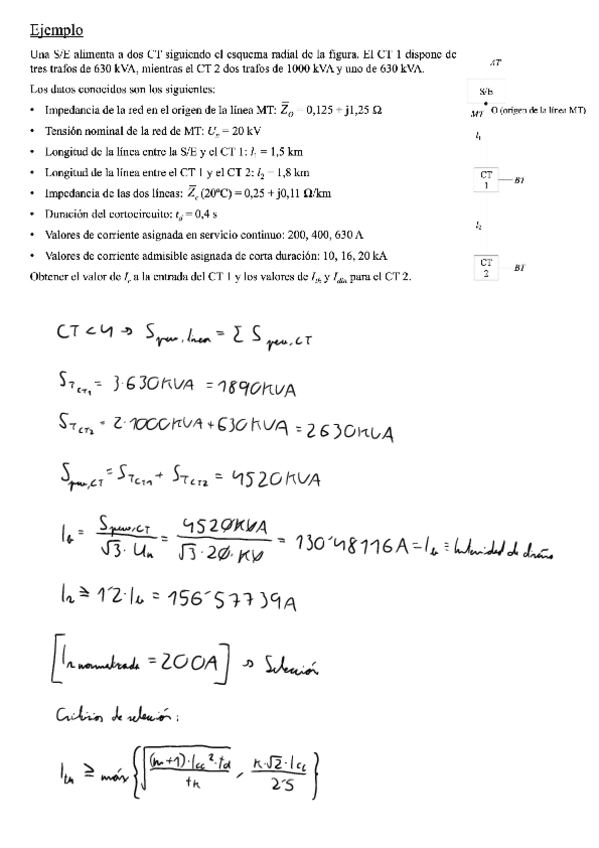 Ejemplo
Una S/E alimenta a dos CT siguiendo el esquema radial de la figura. El CT 1 dispone de
tres trafos de 630 kVA, mientras el CT 2 dos trafos de 1000 kVA y uno de 630 kVA.
Los datos conocidos son los siguientes:
• Impedancia de la red en el origen de la línea MT: Z̅_O = 0,125 + j1,25 Ω
• Tensión nominal de la red de MT: U_n = 20 kV
• Longitud de la línea entre la S/E y el CT 1: l₁ = 1,5 km
• Longitud de la línea entre el CT 1 y el CT 2: l₂ = 1,8 km
• Impedancia de las dos líneas: Z̅_c (20ºC) = 0,25 + j0,11 Ω/km
• Duración del cortocircuito: t_d = 0,4 s
• Valores de corriente asignada en servicio continuo: 200, 400, 630 A
• Valores de corriente admisible asignada de corta duración: 10, 16, 20 kA
Obtener el valor de I_r a la entrada del CT 1 y los valores de I_th y I_din para el CT 2.
AT
S/E
MT O (origen de la línea MT)
l₁
CT
1
BT
l₂
CT
2
BT
CT < 4 → S_pew,línea = Σ S_pew,CT
S_T_CT1 = 3·630KVA = 1890KVA
S_T_CT2 = 2·1000KVA + 630KVA = 2630KVA
S_pew,CT = S_TCT1 + S_TCT2 = 4520KVA
I_b = S_pew,CT / √3 · U_n = 4520KVA / √3 · 20·KV = 130´48116A = I_b ≡ Intensidad de diseño
I_r ≥ 1´2·I_b = 156´57739A
[I_r normalizada = 200A] → Selección
Criterios de selección:
I_th ≥ máx { √((m+1)·I_cc²·t_d / t_k) , K·√2·I_cc / 2´5 }